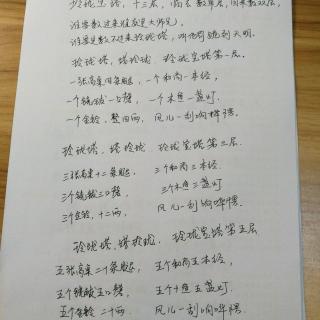 玲珑塔, 十三层, 尚未数单层, 回来数双层,
谁要数过来谁就是大师兄,
谁要是数不过来玲珑塔, 叫他夜晚到天明。
玲珑塔, 塔玲珑, 玲珑宝塔第一层。
一张高桌四条腿, 一个和尚一本经,
一个铙钹一口磬, 一个木鱼一盏灯。
一个金铃, 整四两, 风儿一刮响哗楞。
玲珑塔, 塔玲珑, 玲珑宝塔第三层。
三张高桌十二条腿, 三个和尚三本经,
三个铙钹三口磬, 三个木鱼三盏灯
三个金铃, 十二两, 风儿一刮响哗楞。
玲珑塔, 塔玲珑, 玲珑宝塔第五层
五张高桌二十条腿, 五个和尚五本经,
五个铙钹五口磬, 五个木鱼五盏灯,
五个金铃 二十两, 风儿一刮响哗楞。